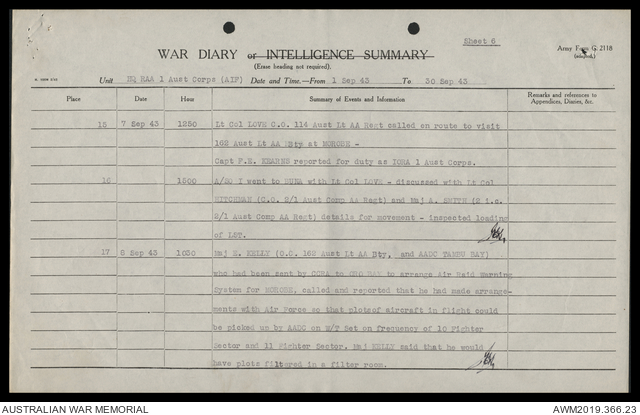 Sheet 6
WAR DIARY or INTELLIGENCE SUMMARY
(Erase heading not required).
Army Form G 2118
(adapted).
Unit HQ RAA 1 Aust Corps (AIF) Date and Time.—From 1 Sep 43 To 30 Sep 43
Place Date Hour Summary of Events and Information Remarks and references to
Appendices, Diaries, &c.
15 7 Sep 43 1250 Lt Col LOVE C.O. 114 Aust Lt AA Regt called en route to visit
162 Aust Lt AA Bty at MOROBE -
Capt F.E. KEARNS reported for duty as IORA 1 Aust Corps.
16 1500 A/SO I went to BUNA with Lt Col LOVE - discussed with Lt Col
HITCHMAN (C.O. 2/1 Aust Comp AA Regt) and Maj A. SMITH (2 i.c.
2/1 Aust Comp AA Regt) details for movement - inspected loading
of LST.
17 8 Sep 43 1030 Maj E. KELLY (O.C. 162 Aust Lt AA Bty, and AADC TAMBU BAY)
who had been sent by CCRA to to arrange Air Raid Warning
System for MOROBE, called and reported that he had made arrange-
ments with Air Force so that plotsof aircraft in flight could
be picked up by AADC on W/T Set on frequency of 10 Fighter
Sector and 11 Fighter Sector. Maj KELLY said that he would
have plots filtured in a filter room.
AUSTRALIAN WAR MEMORIAL
AWM2019.366.23